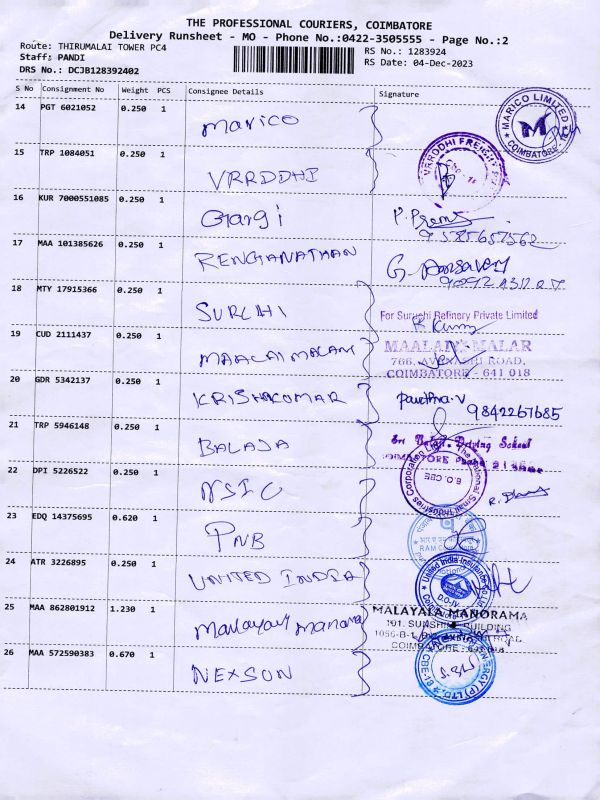 THE PROFESSIONAL COURIERS, COIMBATORE
Delivery Runsheet - MO - Phone No.:0422-3505555 - Page No.:2
Route: THIRUMALAI TOWER PC4
RS No.: 1283924
Staff: PANDI
RS Date: 04-Dec-2023
DRS No.: DCJB128392402
S No Consignment No Weight PCS Consignee Details Signature
14 PGT 6021052 0.250 1 Marico
MARICO LIMITED COIMBATORE
15 TRP 1084051 0.250 1 VRRDDHI
VRRDDHI FREIGHT
16 KUR 7000551085 0.250 1 Gargi P. Prema
9585657562
17 MAA 101385626 0.250 1 RENGANATHAN
18 MTY 17915366 0.250 1 SURUHI
For Suruchi Refinery Private Limited
19 CUD 2111437 0.250 1 MAALAI MALAR
MAALAI MALAR
766, AVINASHI ROAD,
COIMBATORE - 641 018
20 GDR 5342137 0.250 1 KRISHAKUMAR
9842267685
21 TRP 5946148 0.250 1 BALAJA
Sri Balaji Driving School
22 DPI 5226522 0.250 1 NSIC
B.O. CBE
23 EDQ 14375695 0.620 1 PNB
24 ATR 3226895 0.250 1 UNITED INDIA
United India Insurance
25 MAA 862801912 1.230 1 Malayay Manorama
MALAYALA MANORAMA
101, SUNSHINE BUILDING
1056-B-1, AVINASHI ROAD
COIMBATORE
26 MAA 572590383 0.670 1 NEXSON